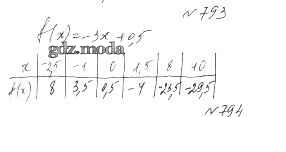 №793
f(x)=-3x+0,5
gdz.moda
x | -2,5 | -1 | 0 | 1,5 | 8 | 10
f(x) | 8 | 3,5 | 0,5 | -4 | -23,5 | -29,5
№794